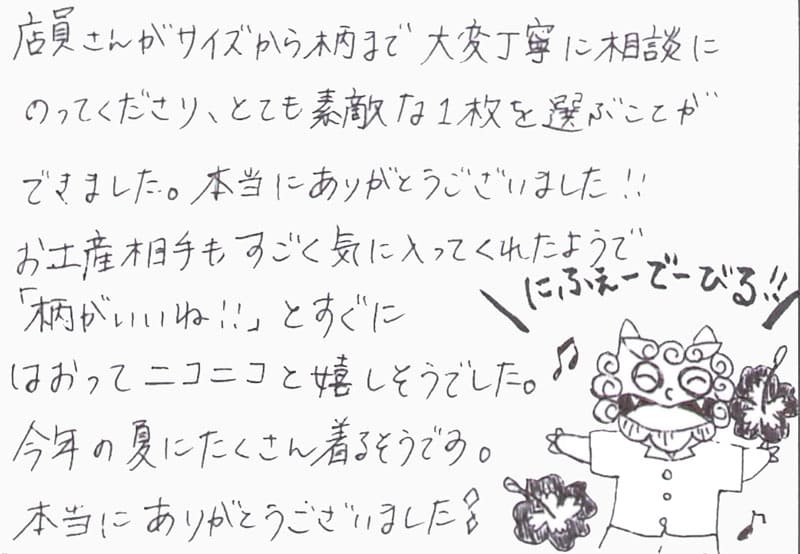 店員さんがサイズから柄まで大変丁寧に相談に
のってくださり、とても素敵な1枚を選ぶことが
できました。本当にありがとうございました!!
お土産相手もすごく気に入ってくれたようで
「柄がいいね!!」とすぐに
にふぇーでーびる!!
はおってニコニコと嬉しそうでした。
今年の夏にたくさん着るそうです。
本当にありがとうございました!